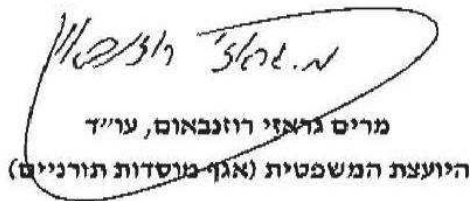 מ. גראזי רוזנבאום
מרים גראזי רוזנבאום, עו״ד
היועצת המשפטית (אגף מוסדות תורניים)